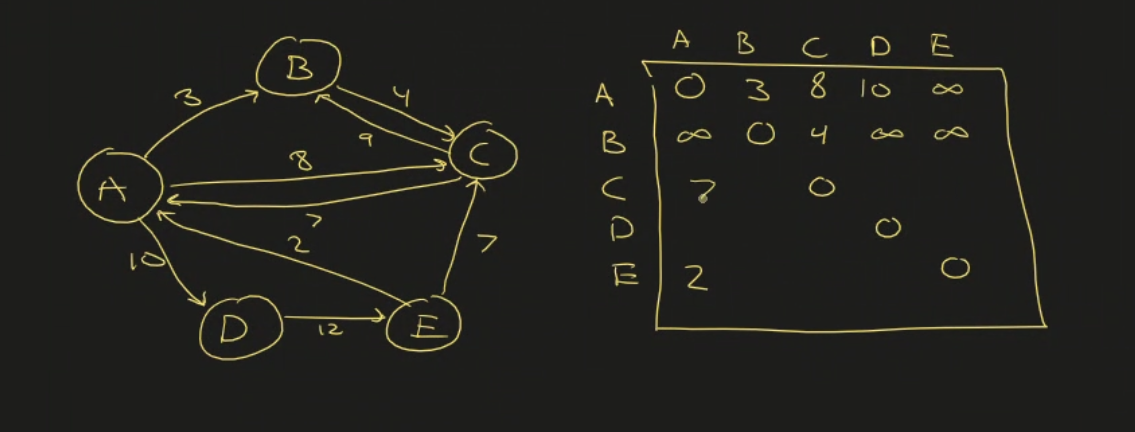 B
3
4
9
8
C
A
7
2
10
7
D
12
E
A B C D E
A 0 3 8 10 ∞
B ∞ 0 4 ∞ ∞
C 7 0
D 0
E 2 0